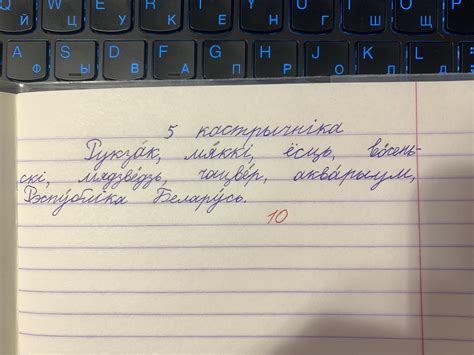 W E R T Y U I O
Й Ц У К Е Н Г Ш Щ
A S D F G H J K L
Ф Ы В А П Р О Л Д
5 кастрычніка
Рукза́к, мя́ккі, ёсць, во́сень-
скі, мядзве́дзь, чацве́р, аква́рыум,
Рэспу́бліка Белару́сь.
10